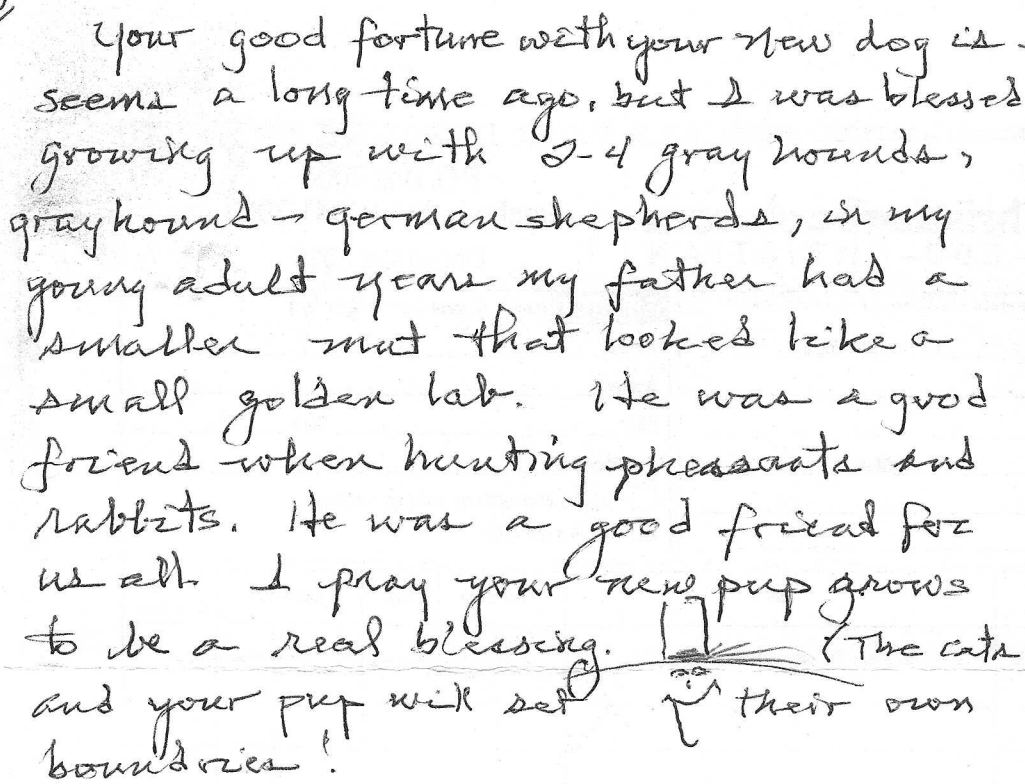 Your good fortune with your new dog is
seems a long time ago, but I was blessed
growing up with 2-4 gray hounds,
grayhound - german shepherds, in my
young adult years my father had a
smaller mut that looked like a
small golden lab. He was a good
friend when hunting pheasants and
rabbits. He was a good friend for
us all. I pray your new pup grows
to be a real blessing. (The cats
and your pup will set their own
boundries!